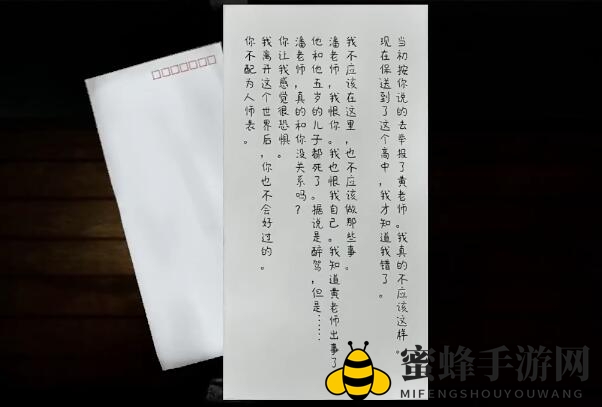 当初按你说的去举报了黄老师。我真的不应该这样。
现在保送到了这个高中，我才知道我错了。
我不应该在这里，也不应该做那些事。
潘老师，我恨你。我也恨我自己。我知道黄老师出事了，
他和他五岁的儿子都死了。据说是醉驾，但是……
潘老师，真的和你没关系吗？
你让我感觉很恐惧。
我离开这个世界后，你也不会好过的。
你不配为人师表。
蜜蜂手游网
MIFENGSHOUYOUWANG